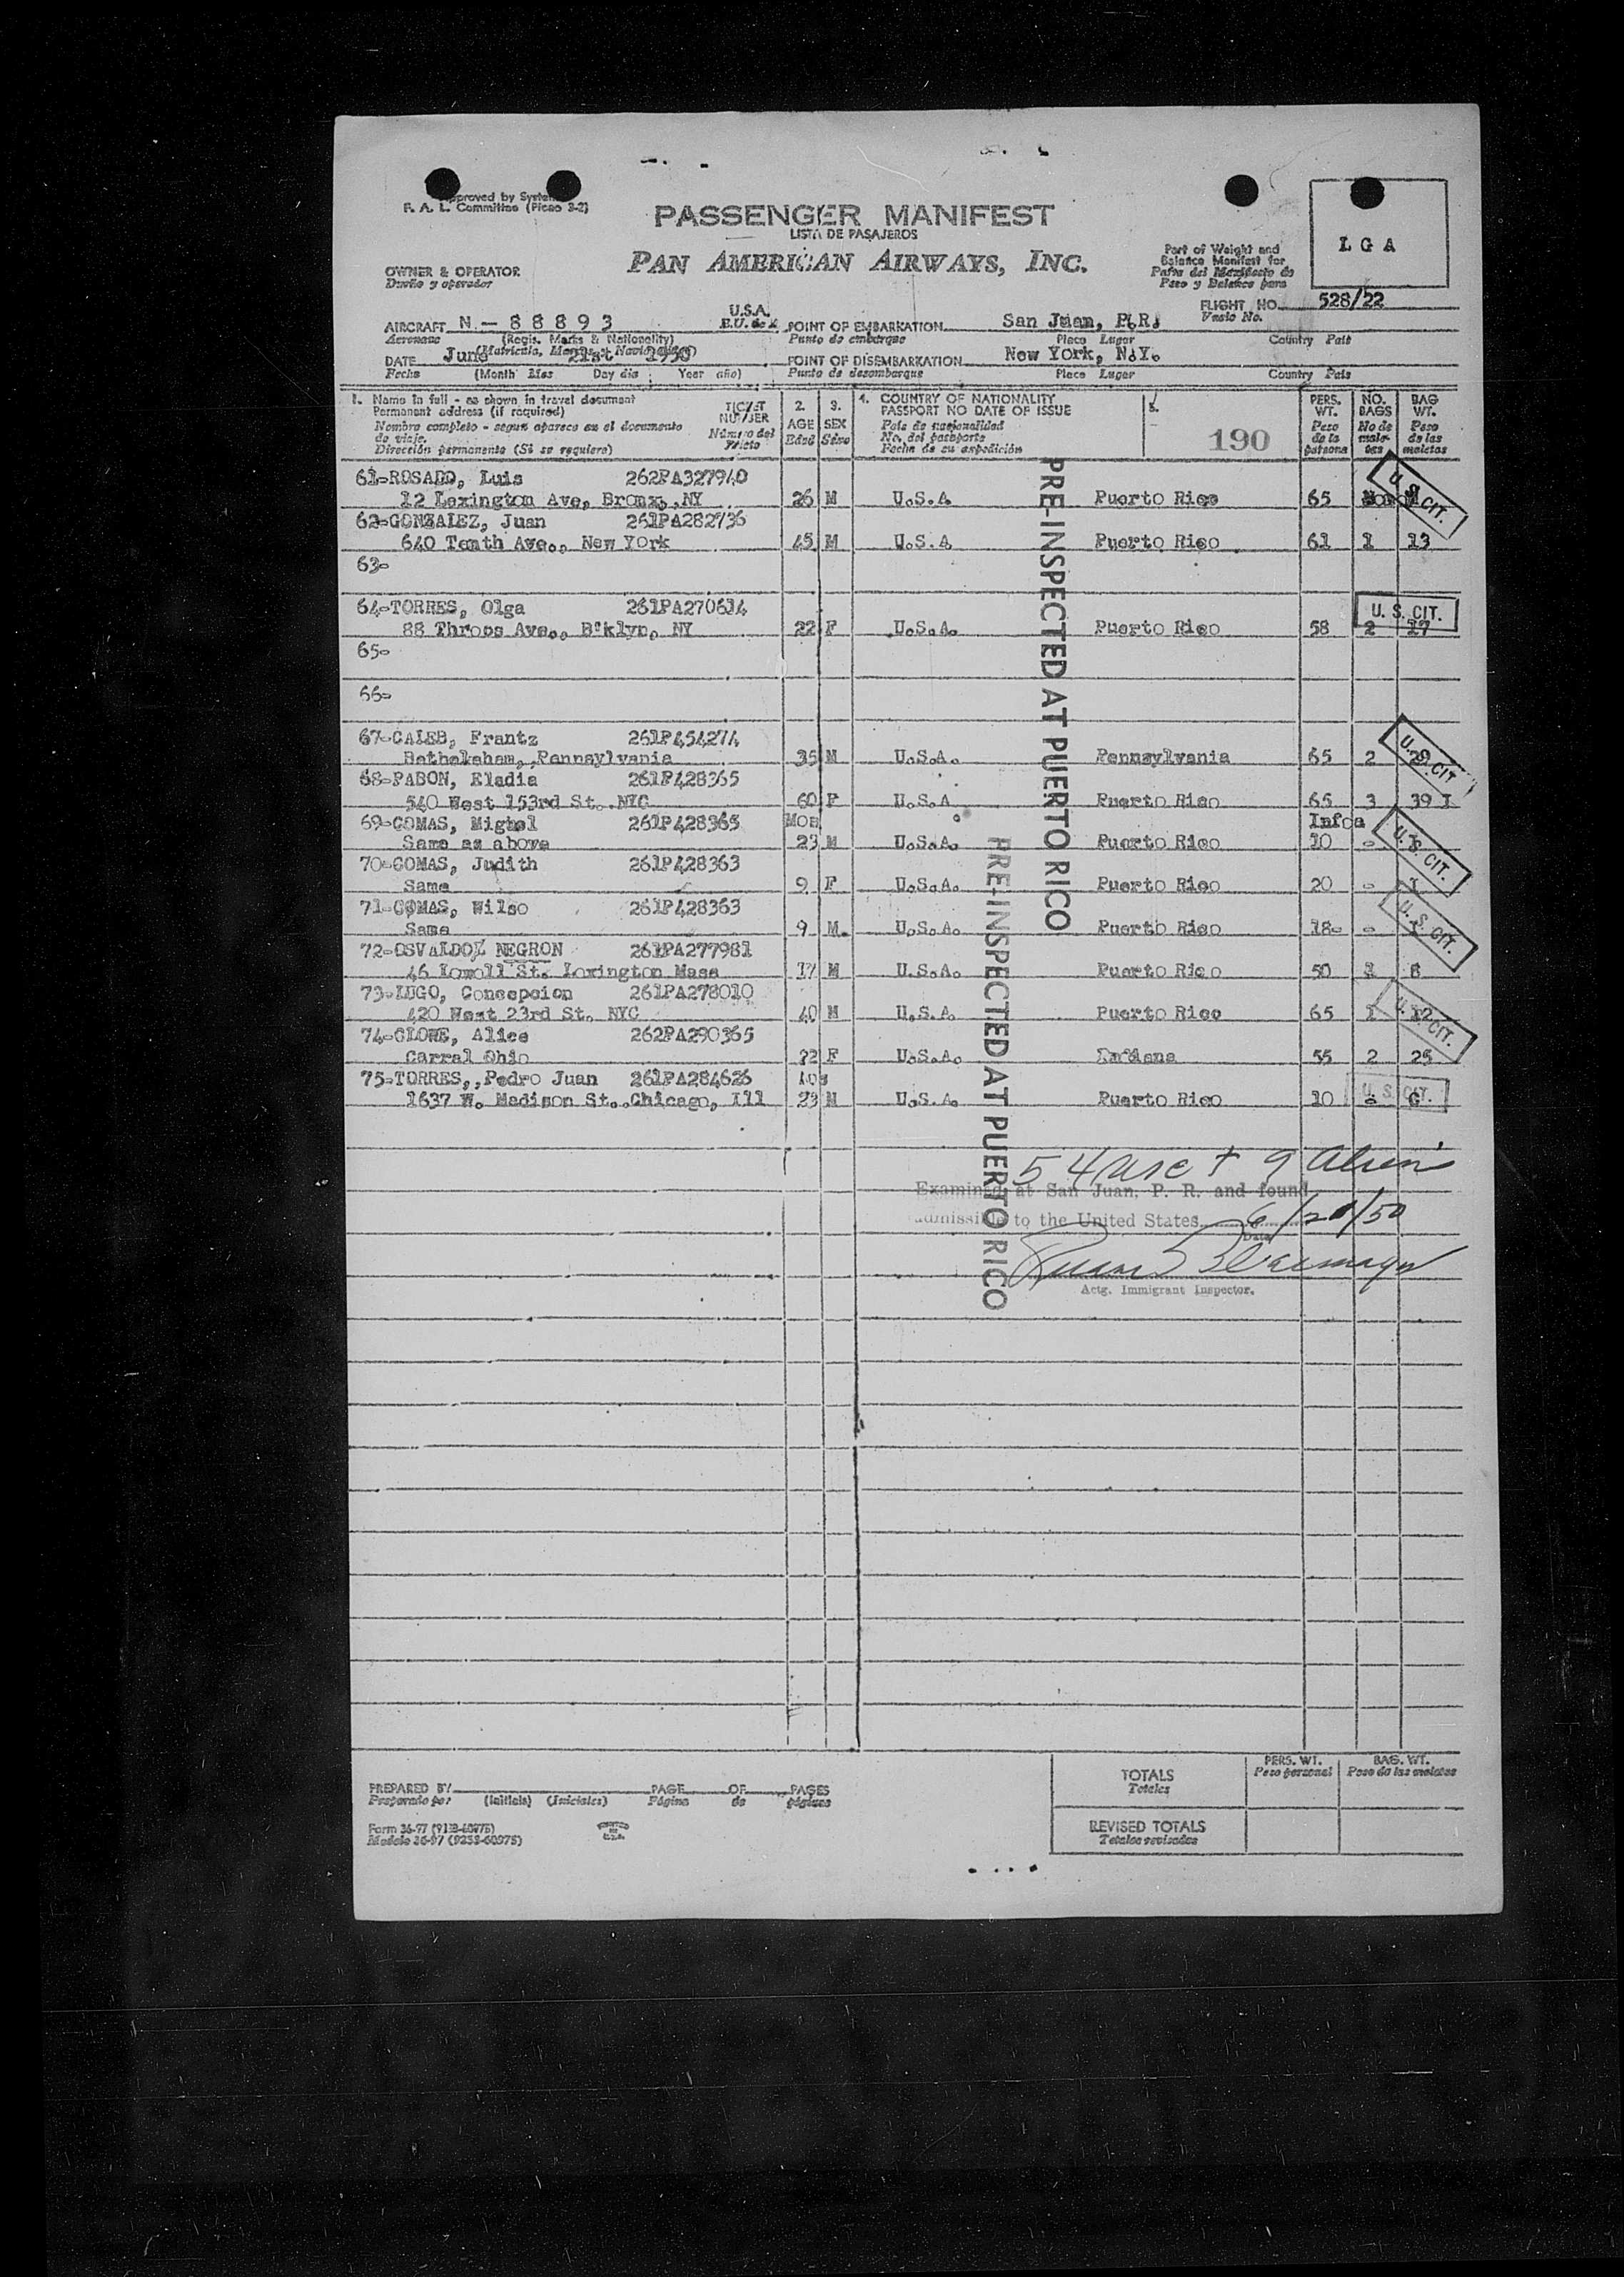 Approved by System
F. A. L. Committee (Picao 3-2)
PASSENGER MANIFEST
LISTA DE PASAJEROS
PAN AMERICAN AIRWAYS, INC.
OWNER & OPERATOR
Dueño y operador
Part of Weight and
Balance Manifest for
Parte del Manifiesto de
Peso y Balance para
L G A
FLIGHT NO. 528/22
Vuelo No.
AIRCRAFT N - 88893 U.S.A. POINT OF EMBARKATION San Juan, P.R.
Aeronave (Regis. Marks & Nationality) E.U. de A. Punto de embarque Place Lugar Country País
DATE June 21st 1950 POINT OF DISEMBARKATION New York, N.Y.
Fecha (Month Mes Day dia Year año) Punto de desembarque Place Lugar Country País
1. Name in full - as shown in travel document
Permanent address (if required)
Nombre completo - segun aparece en el documento
de viaje.
Dirección permanente (Si se requiere)
TICKET NUMBER
Número del
2. AGE Edad
3. SEX Sexo
4. COUNTRY OF NATIONALITY
PASSPORT NO DATE OF ISSUE
País de nacionalidad
No. del pasaporte
Fecha de su expedición
5.
190
PERS. WT. Peso de la persona
NO. BAGS No de maletas
BAG WT. Peso de las maletas
61-ROSADO, Luis 262PA327940
12 Lexington Ave, Bronx, NY 26 M U.S.A Puerto Rico 65
62-GONZALEZ, Juan 261PA282736
640 Tenth Ave., New York 45 M U.S.A Puerto Rico 61 1 13
63-
64-TORRES, Olga 261PA270614
88 Throop Ave., B'klyn, NY 22 F U.S.A. Puerto Rico 58 2 17
65-
66-
67-CALEB, Frantz 261P454274
Bethelehem, Pennsylvania 35 M U.S.A. Pennsylvania 65 2 29
68-PABON, Eladia 261P428365
540 West 153rd St. NYC 60 F U.S.A Puerto Rico 65 3 39 I
69-COMAS, Mighel 261P428365 Mos Infca
Same as above 23 M U.S.A. Puerto Rico 10 -
70-COMAS, Judith 261P428363
Same 9 F U.S.A. Puerto Rico 20 - I
71-COMAS, Wilso 261P428363
Same 9 M. U.S.A. Puerto Rico 18- - I
72-OSVALDO, NEGRON 261PA277981
46 Lowell St. Lexington Mass 17 M U.S.A. Puerto Rico 50 1 8
73-LUGO, Concepcion 261PA278010
420 West 23rd St. NYC 40 M U.S.A Puerto Rico 65 1 12
74-CLOWE, Alice 262PA290365
Carral Ohio 22 F U.S.A. Indiana 55 2 25
75-TORRES,,Pedro Juan 261PA284626 Mos
1637 W. Madison St. Chicago, Ill 23 M U.S.A. Puerto Rico 10 - 6
U. S. CIT.
U. S. CIT.
U. S. CIT
U. S. CIT.
U. S. CIT.
U. S. CIT.
U. S. CIT.
PRE-INSPECTED AT PUERTO RICO
PRE-INSPECTED AT PUERTO RICO
54 usc + 9 aliens
Examined at San Juan, P. R. and found
admissible to the United States 6/20/50
Date
Actg. Immigrant Inspector.
PREPARED BY PAGE OF PAGES
Preparado por (Initials) (Iniciales) Página de páginas
Form 36-97 (9138-60975)
Modelo 36-97 (9238-60975)
PRINTED IN U.S.A.
PERS. WT. BAG. WT.
Peso personal Peso de las maletas
TOTALS
Totales
REVISED TOTALS
Totales revisados